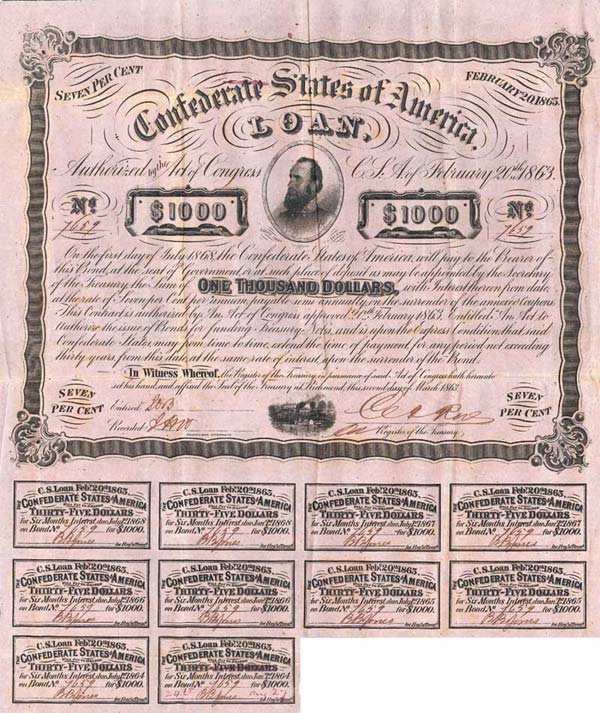 SEVEN PER CENT
FEBRUARY 20, 1863.
Confederate States of America
LOAN,
Authorized by the Act of Congress C.S.A. of February 20th, 1863.
No. $1000 $1000 No.
7659 7659
On the first day of July 1868, the Confederate States of America, will pay to the Bearer of
this Bond, at the seat of Government, or at such place of deposit as may be appointed by the Secretary
of the Treasury the Sum of ONE THOUSAND DOLLARS, with Interest thereon from date,
at the rate of Seven per Cent per annum, payable semi-annually on the surrender of the annexed Coupons.
This Contract is authorized by An Act of Congress approved 20th February 1863, Entitled "An Act to
Authorize the issue of Bonds for funding Treasury Notes, and is upon the Express Condition, that said
Confederate States, may from time to time, extend the time of payment, for any period not exceeding
thirty years from this date, at the same rate of interest, upon the surrender of the Bond.
In Witness Whereof, the Register of the Treasury in pursuance of said Act of Congress hath hereunto
set his hand, and affixed the Seal of the Treasury at Richmond, this second day of March 1863.
SEVEN
PER CENT
SEVEN
PER CENT
Entered
Recorded
Register of the Treasury
C.S. Loan Feby. 20th 1863.
THE CONFEDERATE STATES OF AMERICA
THIRTY-FIVE DOLLARS
for Six Months Interest, due July 1st 1868
on Bond No. 7659 for $1000.
C.S. Loan Feby. 20th 1863.
THE CONFEDERATE STATES OF AMERICA
THIRTY-FIVE DOLLARS
for Six Months Interest, due Jany. 1st 1868
on Bond No. 7659 for $1000.
C.S. Loan Feby. 20th 1863.
THE CONFEDERATE STATES OF AMERICA
THIRTY-FIVE DOLLARS
for Six Months Interest, due July 1st 1867
on Bond No. 7659 for $1000.
C.S. Loan Feby. 20th 1863.
THE CONFEDERATE STATES OF AMERICA
THIRTY-FIVE DOLLARS
for Six Months Interest, due Jany. 1st 1867
on Bond No. 7659 for $1000.
C.S. Loan Feby. 20th 1863.
THE CONFEDERATE STATES OF AMERICA
THIRTY-FIVE DOLLARS
for Six Months Interest, due July 1st 1866
on Bond No. 7659 for $1000.
C.S. Loan Feby. 20th 1863.
THE CONFEDERATE STATES OF AMERICA
THIRTY-FIVE DOLLARS
for Six Months Interest, due Jany. 1st 1866
on Bond No. 7659 for $1000.
C.S. Loan Feby. 20th 1863.
THE CONFEDERATE STATES OF AMERICA
THIRTY-FIVE DOLLARS
for Six Months Interest, due July 1st 1865
on Bond No. 7659 for $1000.
C.S. Loan Feby. 20th 1863.
THE CONFEDERATE STATES OF AMERICA
THIRTY-FIVE DOLLARS
for Six Months Interest, due Jany. 1st 1865
on Bond No. 7659 for $1000.
C.S. Loan Feby. 20th 1863.
THE CONFEDERATE STATES OF AMERICA
THIRTY-FIVE DOLLARS
for Six Months Interest, due July 1st 1864
on Bond No. 7659 for $1000.
C.S. Loan Feby. 20th 1863.
THE CONFEDERATE STATES OF AMERICA
THIRTY-FIVE DOLLARS
for Six Months Interest, due Jany. 1st 1864
on Bond No. 7659 for $1000.